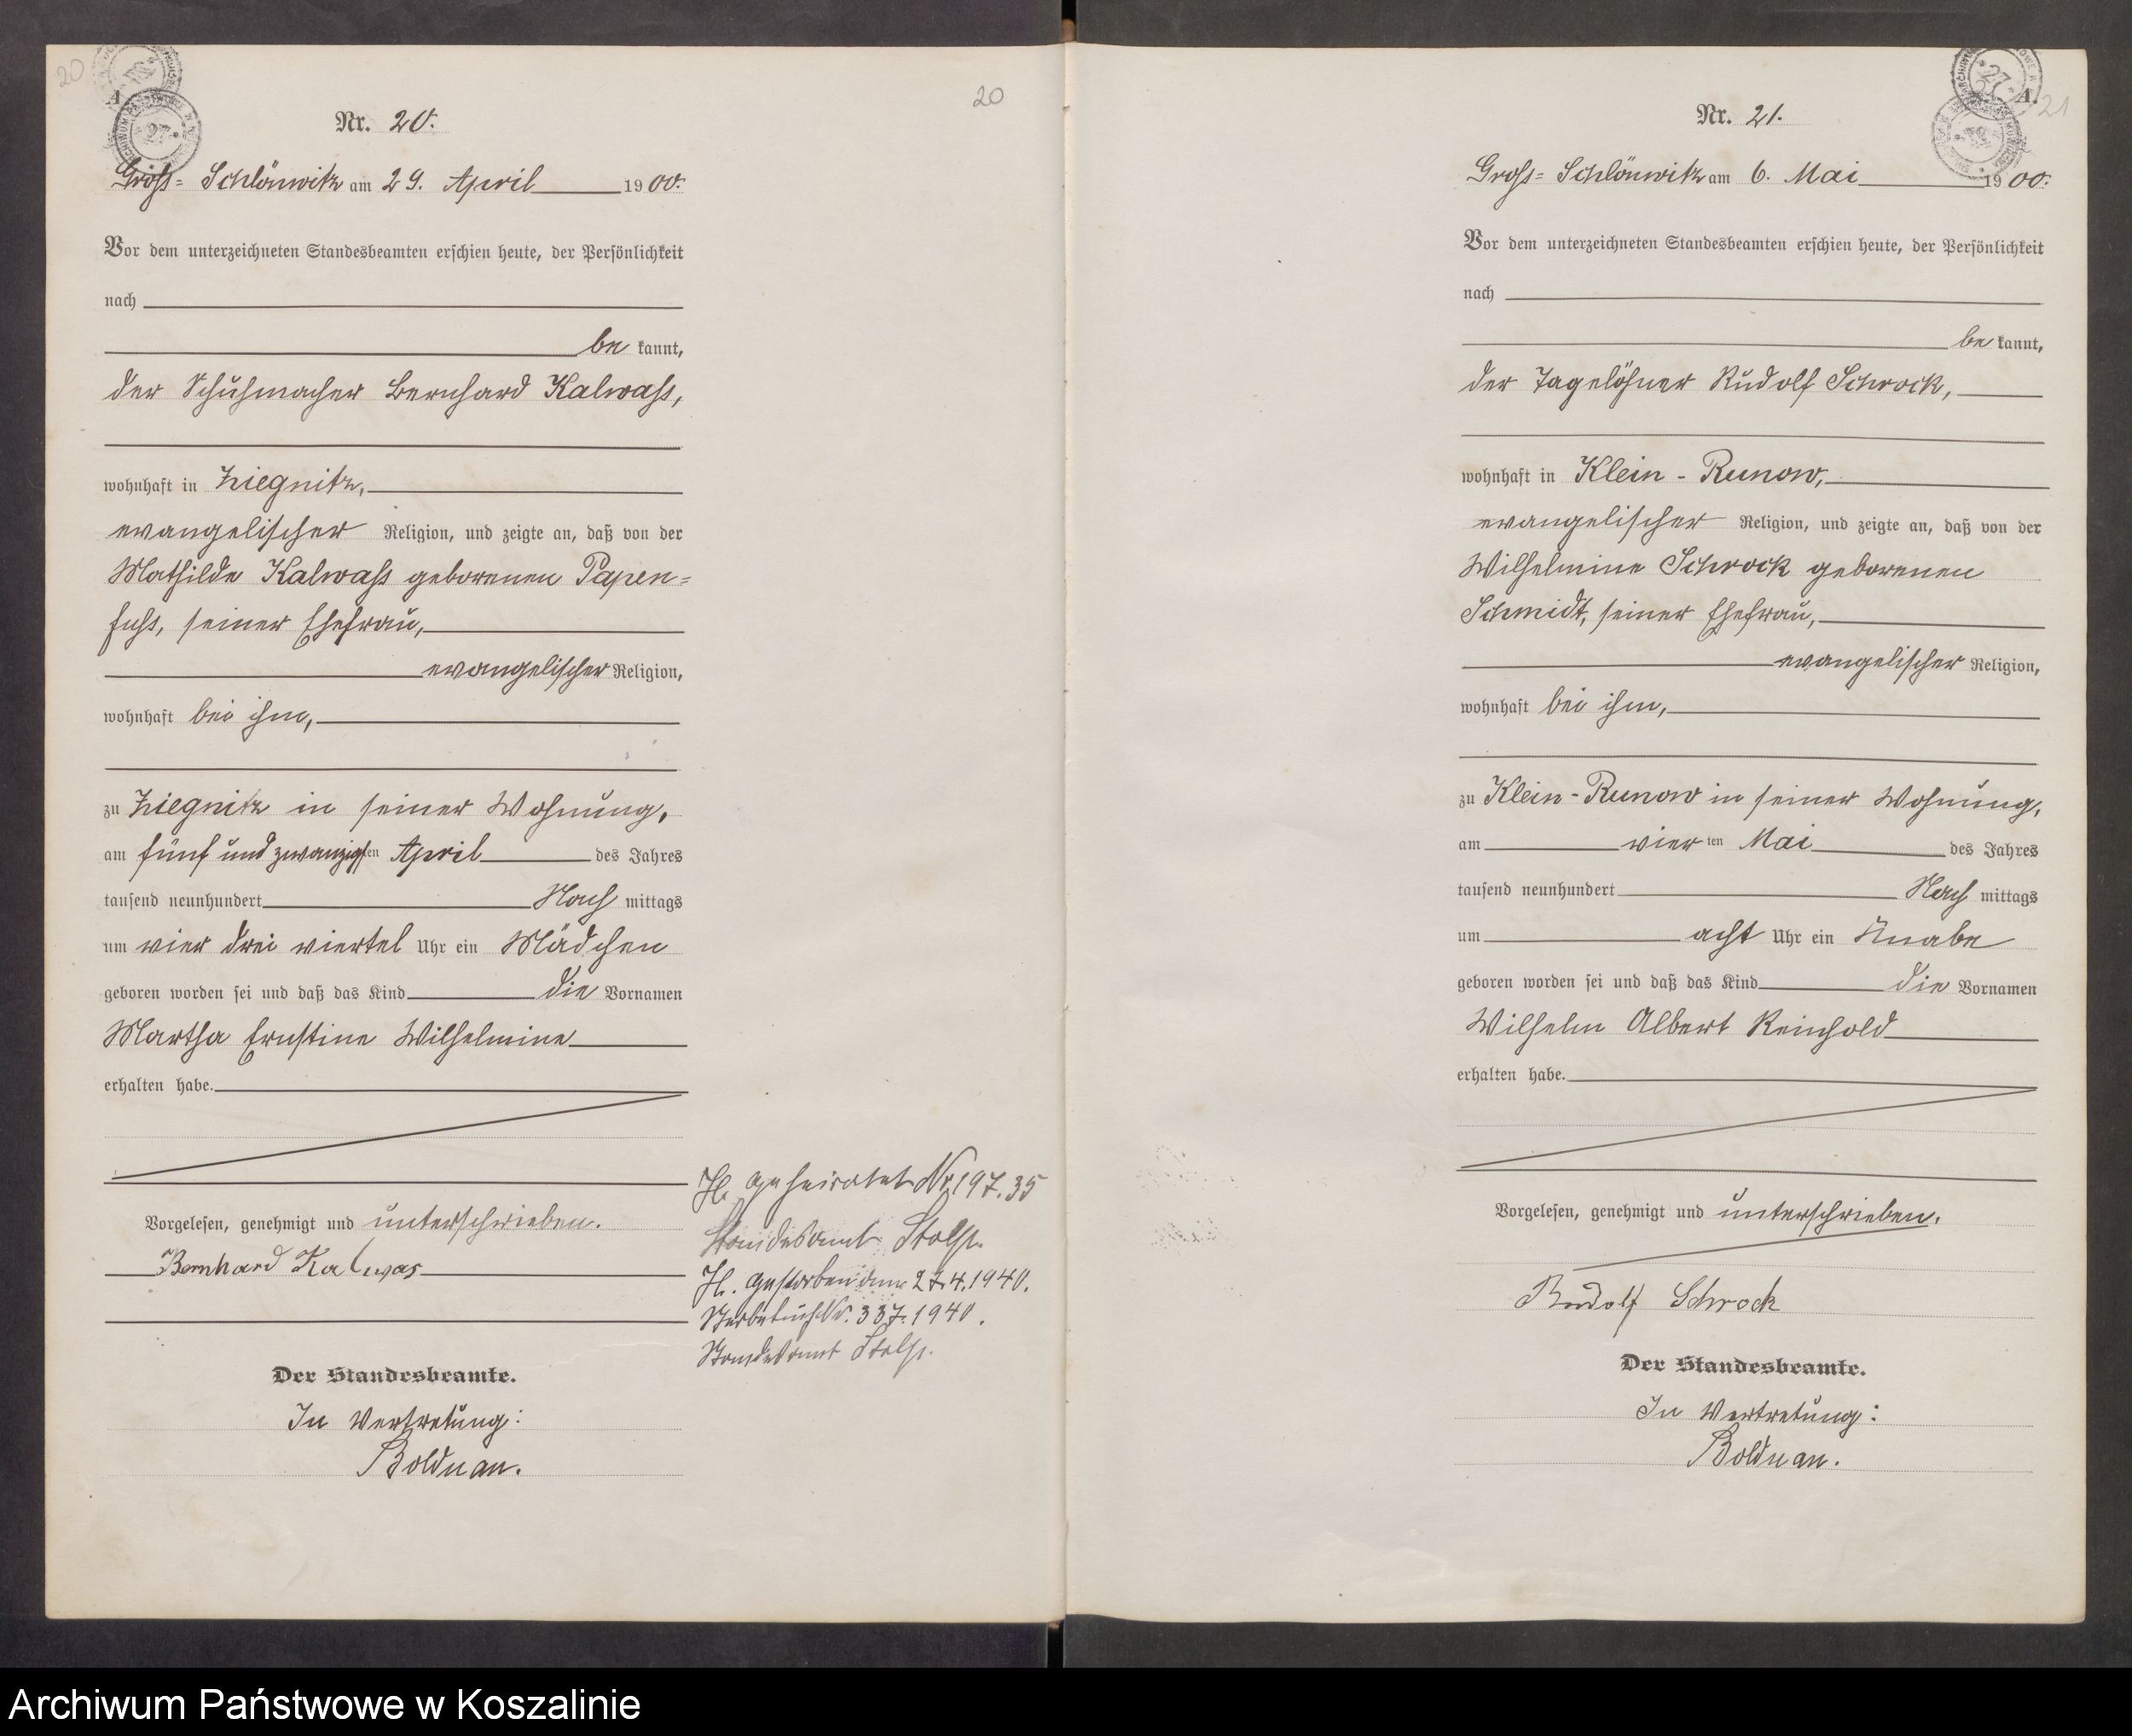 20
20
A
Nr. 20.
Gross= Schlönwitz am 29. April 1900.
Vor dem unterzeichneten Standesbeamten erschien heute, der Persönlichkeit
nach
be kannt,
der Schuhmacher Bernhard Kalwass,
wohnhaft in Ziegnitz,
evangelischer Religion, und zeigte an, daß von der
Mathilde Kalwass geborenen Papen=
fuss, seiner Ehefrau,
evangelischer Religion,
wohnhaft bei ihm,
zu Ziegnitz in seiner Wohnung,
am fünf und zwanzigsten April des Jahres
tausend neunhundert Nach mittags
um vier drei viertel Uhr ein Mädchen
geboren worden sei und daß das Kind die Vornamen
Martha Ernstine Wilhelmine
erhalten habe.
Vorgelesen, genehmigt und unterschrieben.
Bernhard Kalwas
Der Standesbeamte.
In Vertretung:
Bolduan.
geheiratet Nr. 197.35
Standesamt Stolp.
gestorben am 27.4.1940.
Sterbebuch Nr. 337.1940.
Standesamt Stolp.
A.
21
Nr. 21.
Gross= Schlönwitz am 6. Mai 1900.
Vor dem unterzeichneten Standesbeamten erschien heute, der Persönlichkeit
nach
be kannt,
der Tagelöhner Rudolf Schrock,
wohnhaft in Klein - Runow,
evangelischer Religion, und zeigte an, daß von der
Wilhelmine Schrock geborenen
Schmidt, seiner Ehefrau,
evangelischer Religion,
wohnhaft bei ihm,
zu Klein - Runow in seiner Wohnung,
am vier ten Mai des Jahres
tausend neunhundert Nach mittags
um acht Uhr ein Knabe
geboren worden sei und daß das Kind die Vornamen
Wilhelm Albert Reinhold
erhalten habe.
Vorgelesen, genehmigt und unterschrieben.
Rudolf Schrock
Der Standesbeamte.
In Vertretung:
Bolduan.
Archiwum Państwowe w Koszalinie